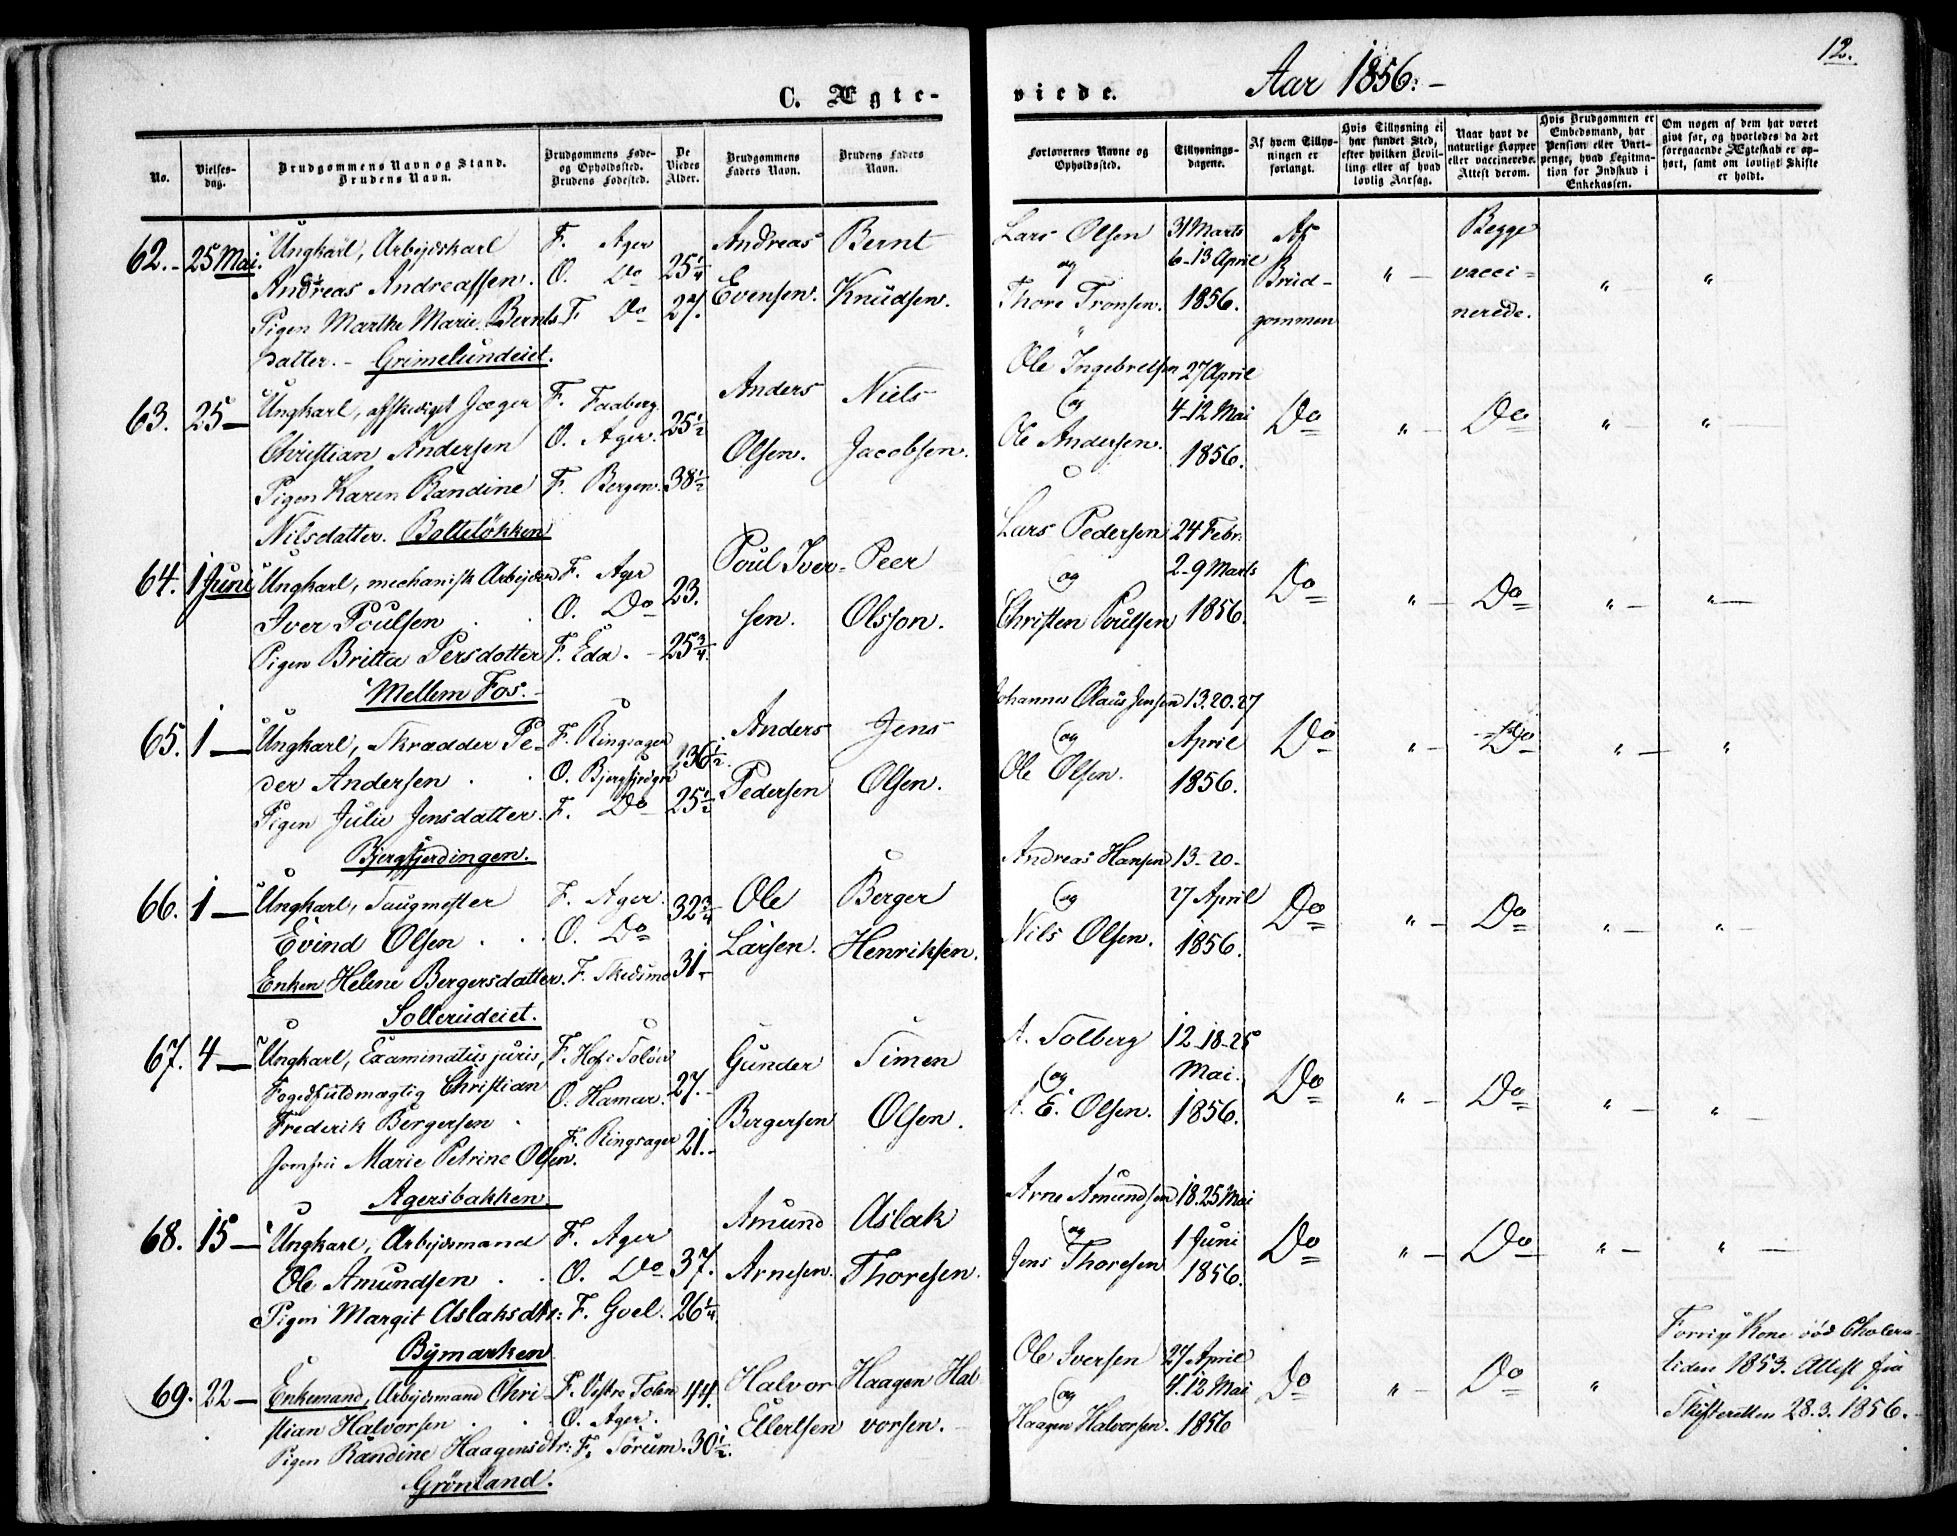 12.
C. Ægte-
viede.
Aar 1856.-
No.
Vielses-
dag.
Brudgommens Navn og Stand.
Brudens Navn.
Brudgommens Føde-
og Opholdssted.
Brudens Fødested.
De
Viedes
Alder.
Brudgommens
Faders Navn.
Brudens Faders
Navn.
Forlovernes Navne og
Opholdssted.
Tillysnings-
dagene.
Af hvem Tillys-
ningen er
forlangt.
Hvis Tillysning ei
har fundet Sted,
efter hvilken Bevil-
ling eller af hvad
lovlig Aarsag.
Naar havt de
naturlige Kopper
eller vaccinerede.
Attest derom.
Hvis Brudgommen er
Embedsmand, har
Pension eller Vart-
penge, hvad Legitma-
tion for Indskud i
Enkekassen.
Om nogen af dem har været
gift før, og hvorledes da det
foregaaende Ægteskab er op-
hørt, samt om lovligt Skifte
er holdt.
62.- 25 Mai.
Ungkarl, Arbejdskarl
Andreas Andreassen.
Pigen Marthe Marie Bernts
datter. - Grimelundeiet.
F. Ager
O. Do
F. Do
25 1/4
27.
Andreas
Evensen.
Bernt
Knudsen.
Lars Olsen
og
Thore Tronsen.
31 Marts
6-13 April
1856.
Af
Brud-
gommen
" -
Begge
vacci-
nerede.
" -
"
63. 25 -
Ungkarl, afskediget Jæger
Christian Andersen
Pigen Karen Randine
Nilsdatter. Bolteløkken
F. Faaberg
O. Ager.
F. Bergen.
25 1/2
38 1/2
Anders
Olsen.
Niels
Jacobsen.
Ole Ingebretsen
og
Ole Andersen.
27 April
4-12 Mai
1856.
Do
" -
Do
" -
" -
64. 1 Juni
Ungkarl, mechanisk Arbejder
Iver Poulsen
Pigen Britta Persdotter
Mellem Fos.-
F. Ager
O. Do
F. Eda. -
23.
25 3/4.
Poul Iver-
sen.
Peer
Olsson.
Lars Pedersen
og
Christen Poulsen
24 Febr.
2-9 Marts
1856.
Do
" -
Do
" -
" -
65. 1 -
Ungkarl, Skrædder Pe-
der Andersen
Pigen Julie Jensdatter.
Bjergfjerdingen.
F. Ringsager
O. Bjergfjrdgn
F. Do
36 1/2.
25 1/2
Anders
Pedersen
Jens
Olsen.
Johannes Olaus Jensen
og
Ole Olsen.
13.20.27
April
1856.
Do
" -
Do
" -
"
66. 1 -
Ungkarl, Taugmester
Evind Olsen
Enken Helene Bergersdatter.
Sollerudeiet.
F. Ager.
O. Do
F. Skedsmo
32 3/4
31 -
Ole
Larsen.
Berger
Henriksen.
Andreas Hansen
og
Nils Olsen.
13-20-
27 April
1856.
Do
" -
Do
" -
" -
67. 4 -
Ungkarl, Examinatus juris,
Fogedfuldmægtig Christian
Frederik Bergersen
Jomfru Marie Petrine Olsen.
Agersbakken.
F. Hof i Soløer
O. Hamar.
F. Ringsager
27.-
21.-
Gunder
Bergersen
Simen
Olsen.
A. Solberg
og
E. Olsen.
12-18-25
Mai.
1856.
Do
" -
Do
" -
" -
68. 15 -
Ungkarl, Arbejdsmand
Ole Amundsen
Pigen Margit Aslaksdtr:
Bymarken
F. Ager
O. Do
F. Goel.
37.
26 1/4.
Amund
Arnesen.
Aslak
Thoresen.
Arne Amundsen
og
Jens Thoresen
18.25 Mai
1 Juni
1856.
Do
" -
Do
" -
" -
69. 22 -
Enkemand, Arbejdsmand Chri-
stian Halvorsen
Pigen Randine Haagensdtr:
Grønland.
F. Vestre Toten
O. Ager.
F. Sørum.
44.
30 1/2.
Halvor
Ellertsen
Haagen Hal-
vorsen.
Ole Iversen
og
Haagen Halvorsen.
27 April
4.12 Mai
1856
Do
" -
Do
"
Forrige Kone død Cholera-
tiden 1853. Attest fra
Skifteretten 28.3.1856.